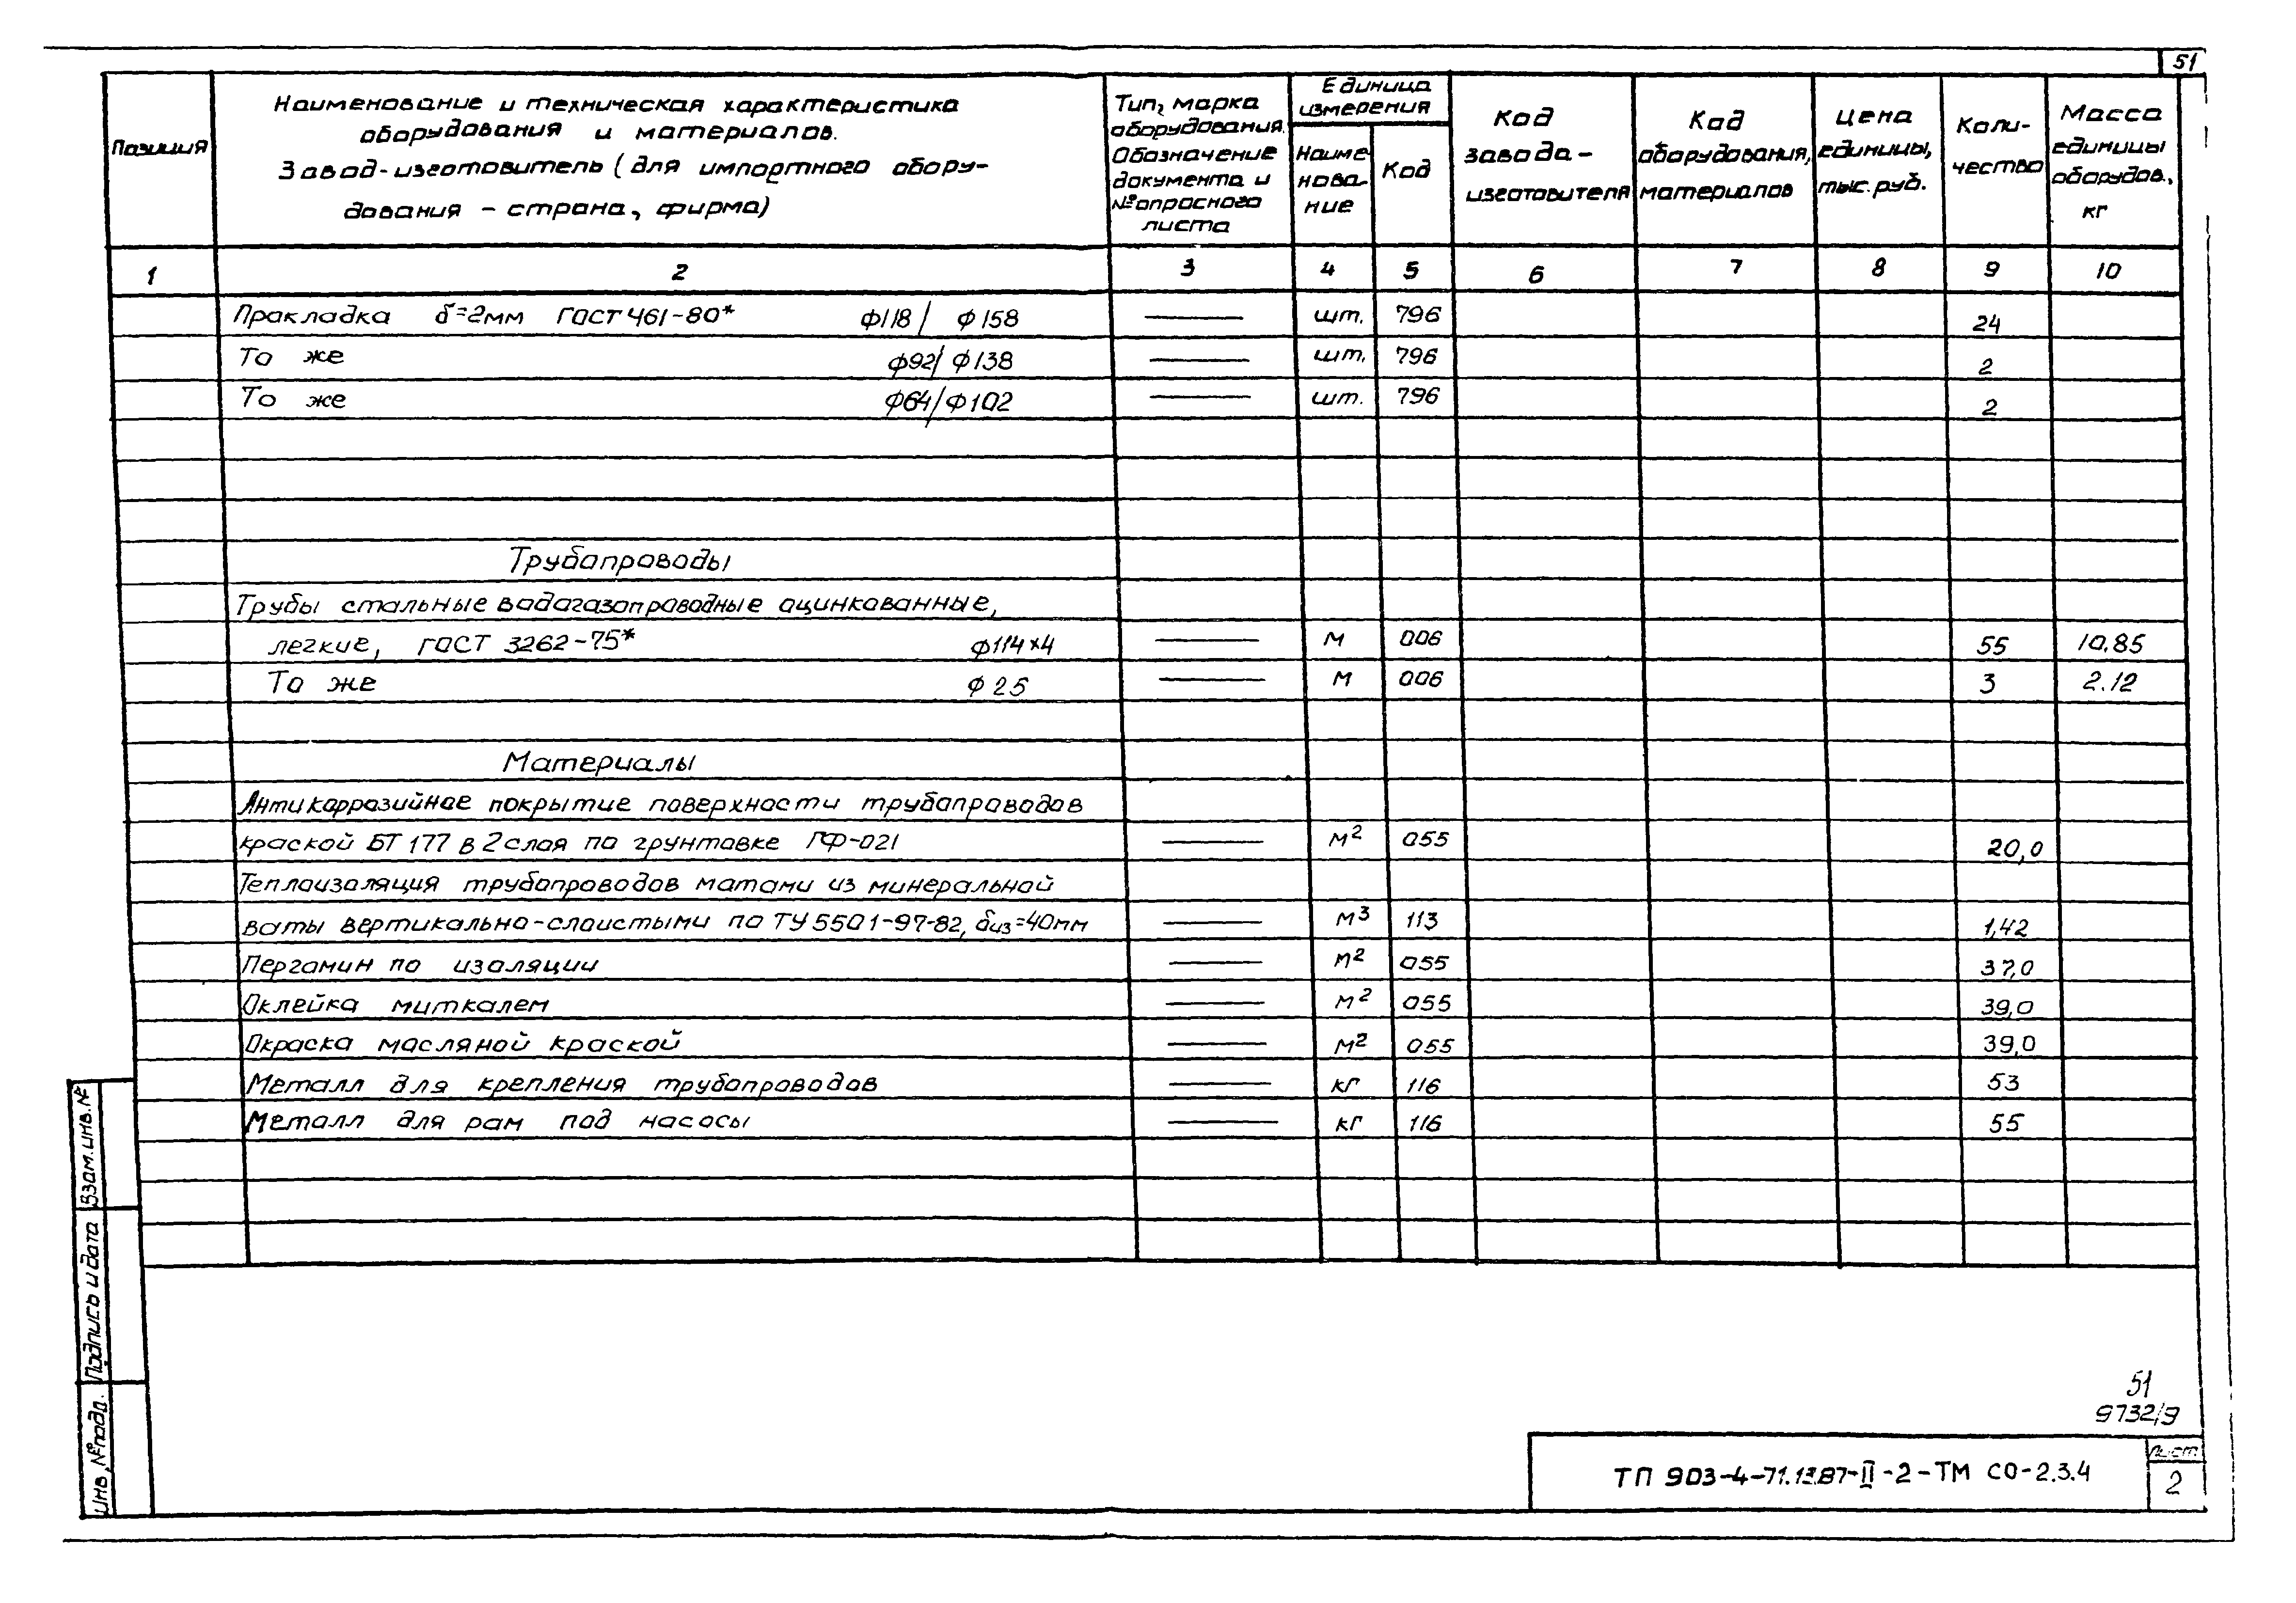 51
Позиция
Наименование и техническая характеристика
оборудования и материалов.
Завод-изготовитель (для импортного обору-
дования - страна, фирма)
Тип, марка
оборудования.
Обозначение
документа и
№ опросного
листа
Единица
измерения
Наиме
нова-
ние
Код
Код
завода-
изготовителя
Код
оборудования,
материалов
Цена
единицы,
тыс. руб.
Коли-
чество
Масса
единицы
оборудов.,
кг
1 2 3 4 5 6 7 8 9 10
Прокладка δ=2мм ГОСТ 461-80* ф118/ ф158 шт. 796 24
То же ф92/ ф138 шт. 796 2
То же ф64/ф102 шт. 796 2
Трубопроводы
Трубы стальные водогазопроводные оцинкованные,
легкие, ГОСТ 3262-75* ф114×4 м 006 55 10.85
То же ф 25 м 006 3 2.12
Материалы
Антикоррозийное покрытие поверхности трубопроводов
краской БТ 177 в 2 слоя по грунтовке ГФ-021 м² 055 20,0
Теплоизоляция трубопроводов матами из минеральной
ваты вертикально-слоистыми по ТУ 5501-97-82, δиз=40мм м³ 113 1,42
Пергамин по изоляции м² 055 37,0
Оклейка миткалем м² 055 39,0
Окраска масляной краской м² 055 39,0
Металл для крепления трубопроводов кг 116 53
Металл для рам под насосы кг 116 55
Взам. инв. №
Подпись и дата
Инв. № подл.
51
9732/9
ТП 903-4-71.13.87-II-2-ТМ СО-2.3.4
Лист
2